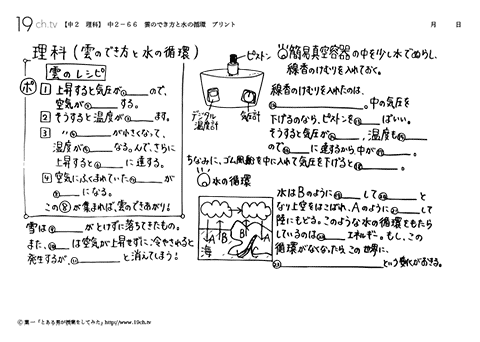 19ch.tv 【中2 理科】 中2-66 雲のでき方と水の循環 プリント 月 日
理科（雲のでき方と水の循環）
ポ
雲のレシピ
1 上昇すると気圧が①____ので、
空気が②____する。
2 そうすると温度が③____ます。
3 〃④____が小さくなって、
湿度が⑤____なる。んで、さらに
上昇すると⑥____に達する。
4 空気にふくまれていた⑦____が
⑧____になる。
この⑧が集まれば、雲のできあがり!
雲は⑨____がとけずに落ちてきたもの。
また、⑩____は空気が上昇せずに冷やされると
発生するが、⑪____と消えてしまう!
ピストン
デジタル
温度計
気圧計
簡易真空容器の中を少し水でぬらし、
線香のけむりを入れておく。
線香のけむりを入れたのは、
⑫____。中の気圧を
下げるのなら、ピストンを⑬____ばいい。
そうすると気圧が⑭____、温度も⑮____
ので⑯____に達するから、中が⑰____。
ちなみに、ゴム風船を中に入れて気圧を下げると⑱____。
水の循環
海
A
B
B
A
水はBのように⑲____して⑳____と
なり上空をはこばれ、Aのように㉑____して
陸にもどる。このような水の循環をもたら
しているのは㉒____エネルギー。もし、この
循環がなくなったら、この世界に、
㉓____という現代がおきる。
© 葉一「とある男が授業をしてみた」 http://www.19ch.tv